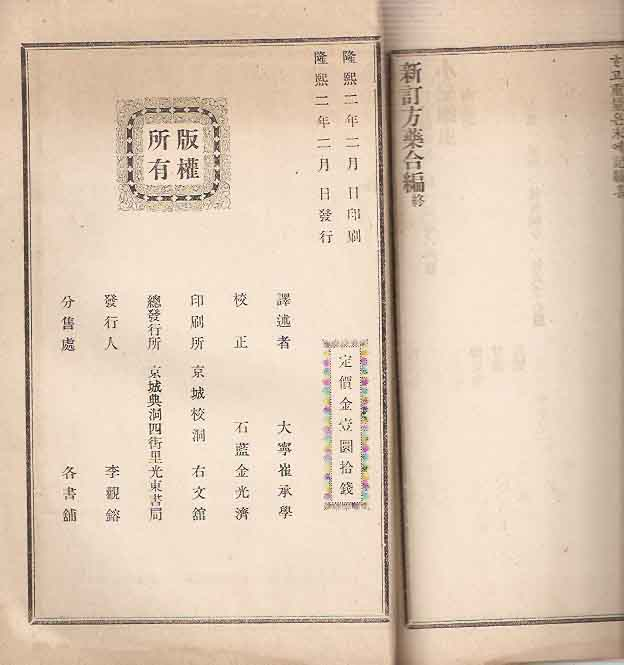 新訂方藥合編終
隆熙二年二月 日印刷
隆熙二年二月 日發行
版權所有
定價金壹圓拾錢
譯述者 大寧崔承學
校正 石藍金光濟
印刷所 京城校洞 右文舘
總發行所 京城典洞四街里光東書局
發行人 李觀鎔
分售處 各書舖